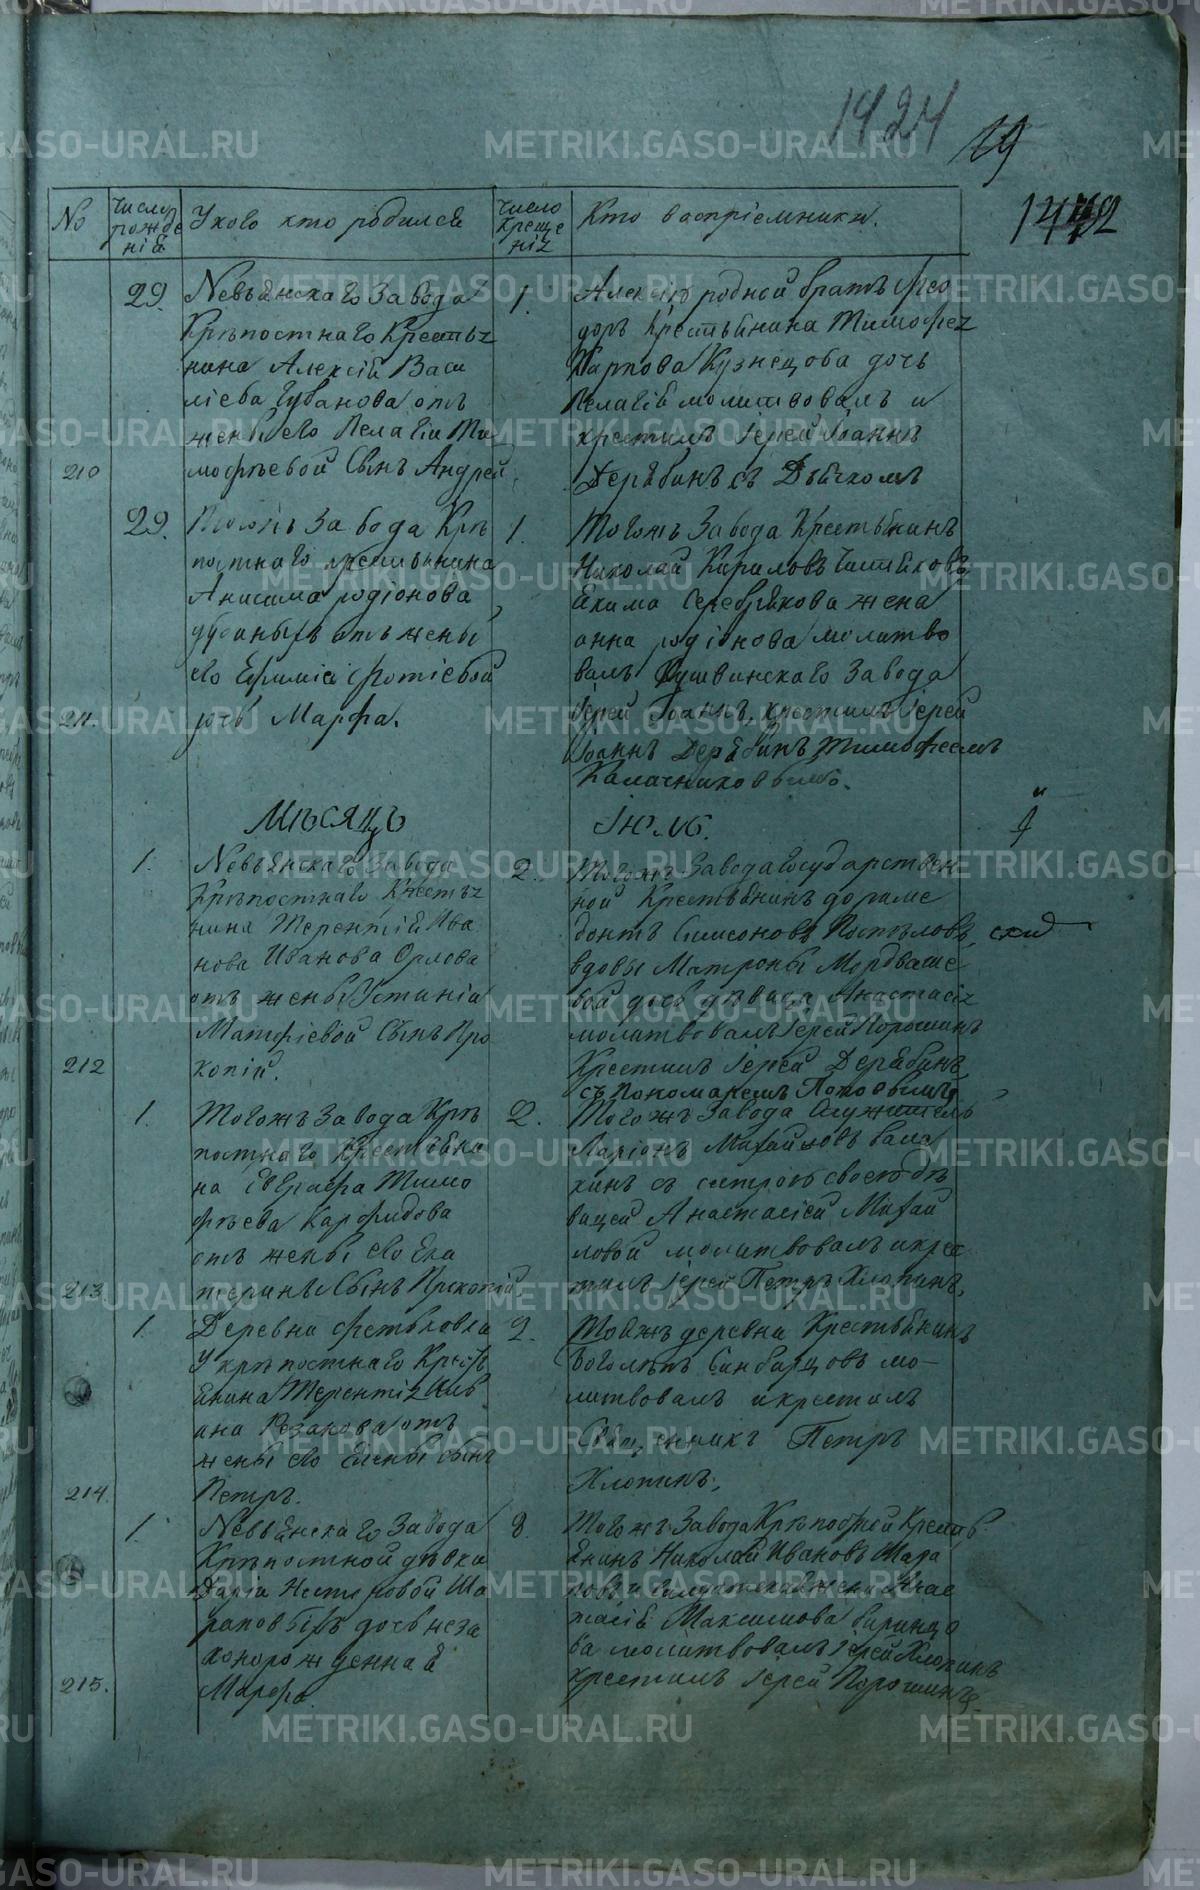 1424
19
1472
№
Число рожде нія
У кого кто родился
Число креще нія
Кто восприемники.
29.
Невьянскаго Завода
Крѣпостнаго Крестья
нина Алексія Васи
лієва Губанова отъ
жены его Пелагіи Ти
мофѣевой Сынъ Андрей
210
1.
родной братъ Фео
доръ Крестьянина Тимофея
Карпова Кузнецова дочь
Пелагія молитвовалъ и
крестилъ Іерей Іоаннъ
Дерябинъ съ Дьячкомъ
29.
Тогожъ Завода Крѣ
постнаго крестьянина
Анисима родіонова
отъ жены
его Ефиміи Фотіевой
дочь Марфа.
211.
1.
Тогожъ Завода Крестьянинъ
Николай Кириловъ
Екима Серебрякова жена
анна родіонова молитво
валъ Кушвинскаго Завода
Іерей Іоаннъ, крестилъ Іерей
Іоаннъ Дерябинъ
Калачниковымъ.
Мѣсяцъ
Іюль.
1.
Невьянскаго Завода
Крѣпостнаго Крестья
нина Терентія Ива
нова Иванова Орлова
отъ жены Устиніи
Матфіевой Сынъ Про
копій.
212
2.
Тогожъ Завода Государствен
ной Крестьянинъ
Симоновъ Постѣловъ,
вдовы Матроны Мордваше
вой дочь дѣвица Анастасія
молитвовалъ Іерей Порошинъ
Крестилъ Іерей Дерябинъ
съ пономаремъ Поповымъ
1.
Тогожъ Завода Крѣ
постнаго Крестьяни
на Евграфа Тимо
фѣева Карфидова
отъ жены его Ека
терины Сынъ Прокопій
213
2.
Тогожъ Завода Служитель
Ларіонъ Михайловъ
съ сестрою своею дѣ
вицей Анастасіей Михай
ловой молитвовалъ и крес
тилъ Іерей Петръ Хлопинъ,
1.
Деревни Фетьковки
У крѣпостнаго Кресть
янина Терентія
ана Резакова отъ
жены его Елены сынъ
Петръ.
214.
2.
Тояжъ деревни Крестьянинъ
мо-
литвовалъ и крестилъ
Священникъ Петръ
Хлопинъ.
1.
Невьянскаго Завода
Крѣпостной дѣвки
Даріи Нестеровой Ша
раповыхъ дочь неза
конорожденная
Марфа.
215.
Тогожъ Завода Крѣпостной Кресть
янинъ Николай Ивановъ Шара
повъ и жена Анас
тасія Максимова
молитвовалъ Іерей Хлопинъ
крестилъ Іерей Порошинъ.
METRIKI.GASO-URAL.RU